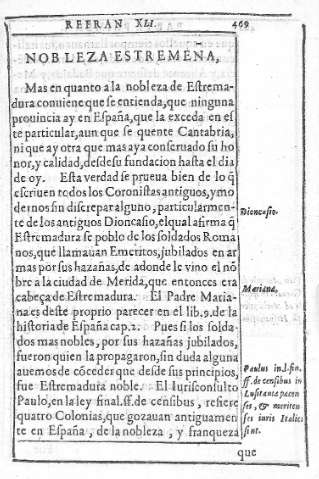 REFRAN XLI. 469
NOBLEZA ESTREMEÑA,
Mas en quanto a la nobleza de Estrema-
dura conuiene que se entienda, que ninguna
prouincia ay en España, que la exceda en es
te particular, aun que se quente Cantabria,
ni que ay otra que mas aya conseruado su ho
nor, y calidad, desde su fundacion hasta el dia
de oy. Esta verdad se prueua bien de lo q̃
escriuen todos los Coronistas antiguos, y mo
dernos sin discrepar alguno, particularmen-
te de los antiguos Dioncasio, el qual afirma q̃
Estremadura se poblo de los soldados Roma
nos, que llamauan Emeritos, jubilados en ar
mas por sus hazañas, de adonde le vino el nõ
bre a la ciudad de Merida, que entonces era
cabeça de Estremadura. El Padre Maria-
na es deste proprio parecer en el lib. 9. de la
historia de España cap. 2. Pues si los solda-
dos mas nobles, por sus hazañas jubilados,
fueron quien la propagaron, sin duda alguna
auemos de cõceder que desde sus principios,
fue Estremadura noble. El Iurisconsulto
Paulo, en la ley final. ff. de censibus, refiere
quatro Colonias, que gozauan antiguamen
te en España, de la nobleza, y franqueza
que
Dioncasio.
Mariana.
Paulus in l. fin.
ff. de censibus in
Lusitania pacen
ses, & meriten
ses iuris Italici
sunt.